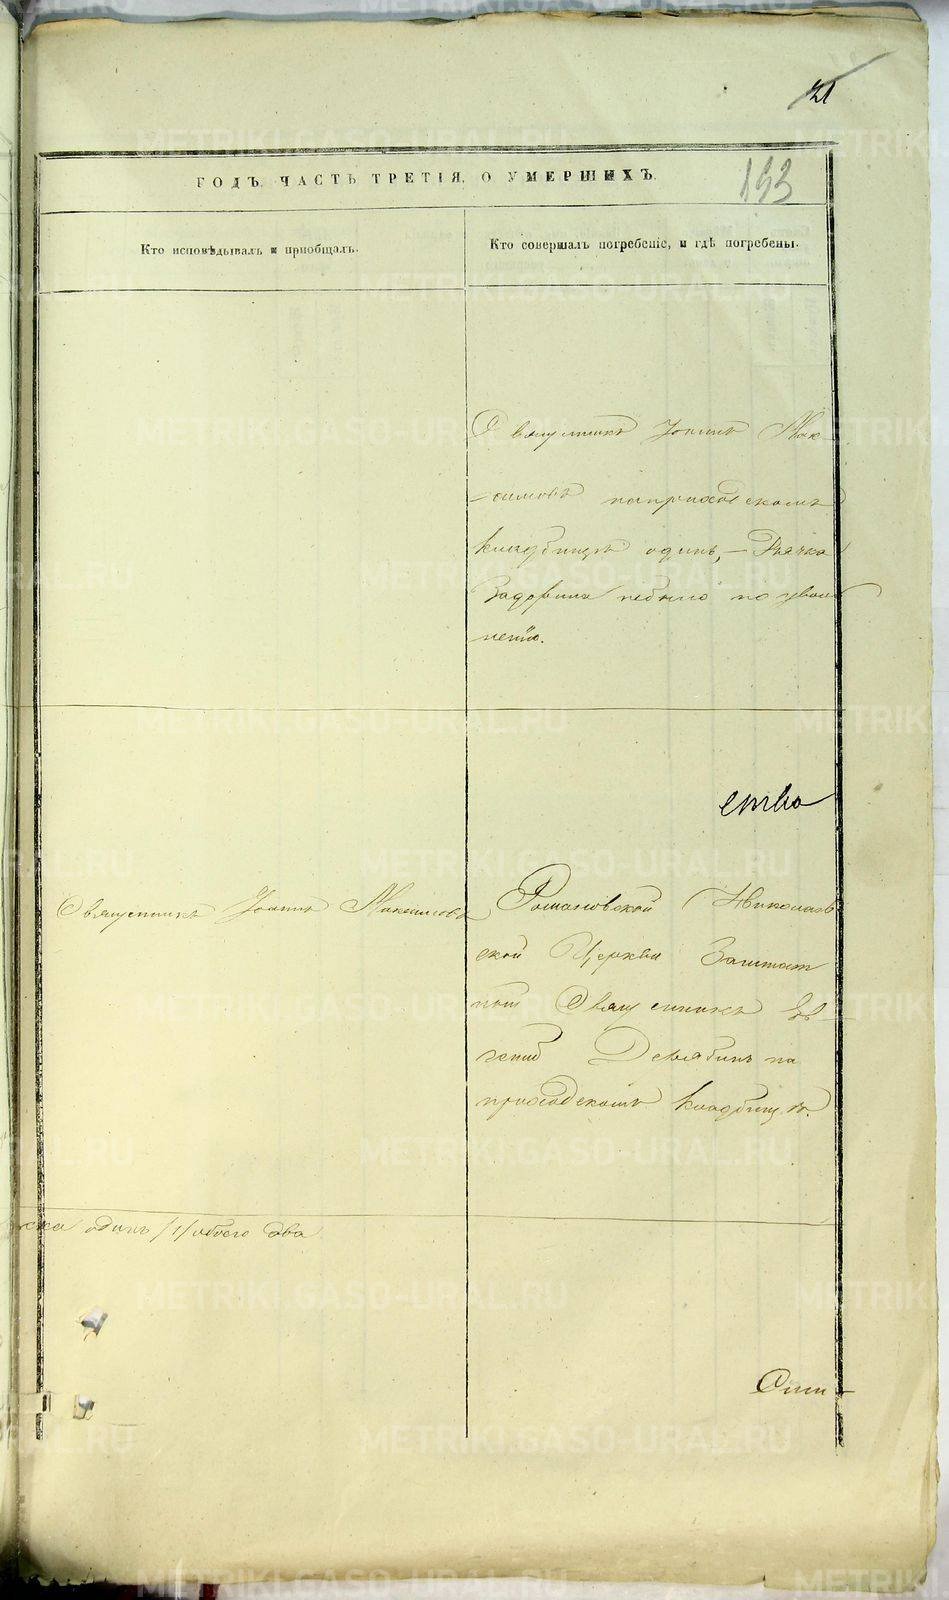 21
153
ГОДЪ. ЧАСТЬ ТРЕТІЯ, О УМЕРШИХЪ.
Кто исповѣдывалъ и приобщалъ.
Кто совершалъ погребеніе, и гдѣ погребены.
Священникъ Іоаннъ Мак-
симовъ на приходскомъ
кладбищѣ одинъ, — Дьячка
Задорина небыло по уволь
ненію.
ства
Священникъ Іоаннъ Максимовъ
Романовской Николаев
ской Церкви Заштат
ный Священникъ Ев-
гений на
приходскомъ кладбищѣ.
ска одинъ /1/ обоего два
METRIKI.GASO-URAL.RU